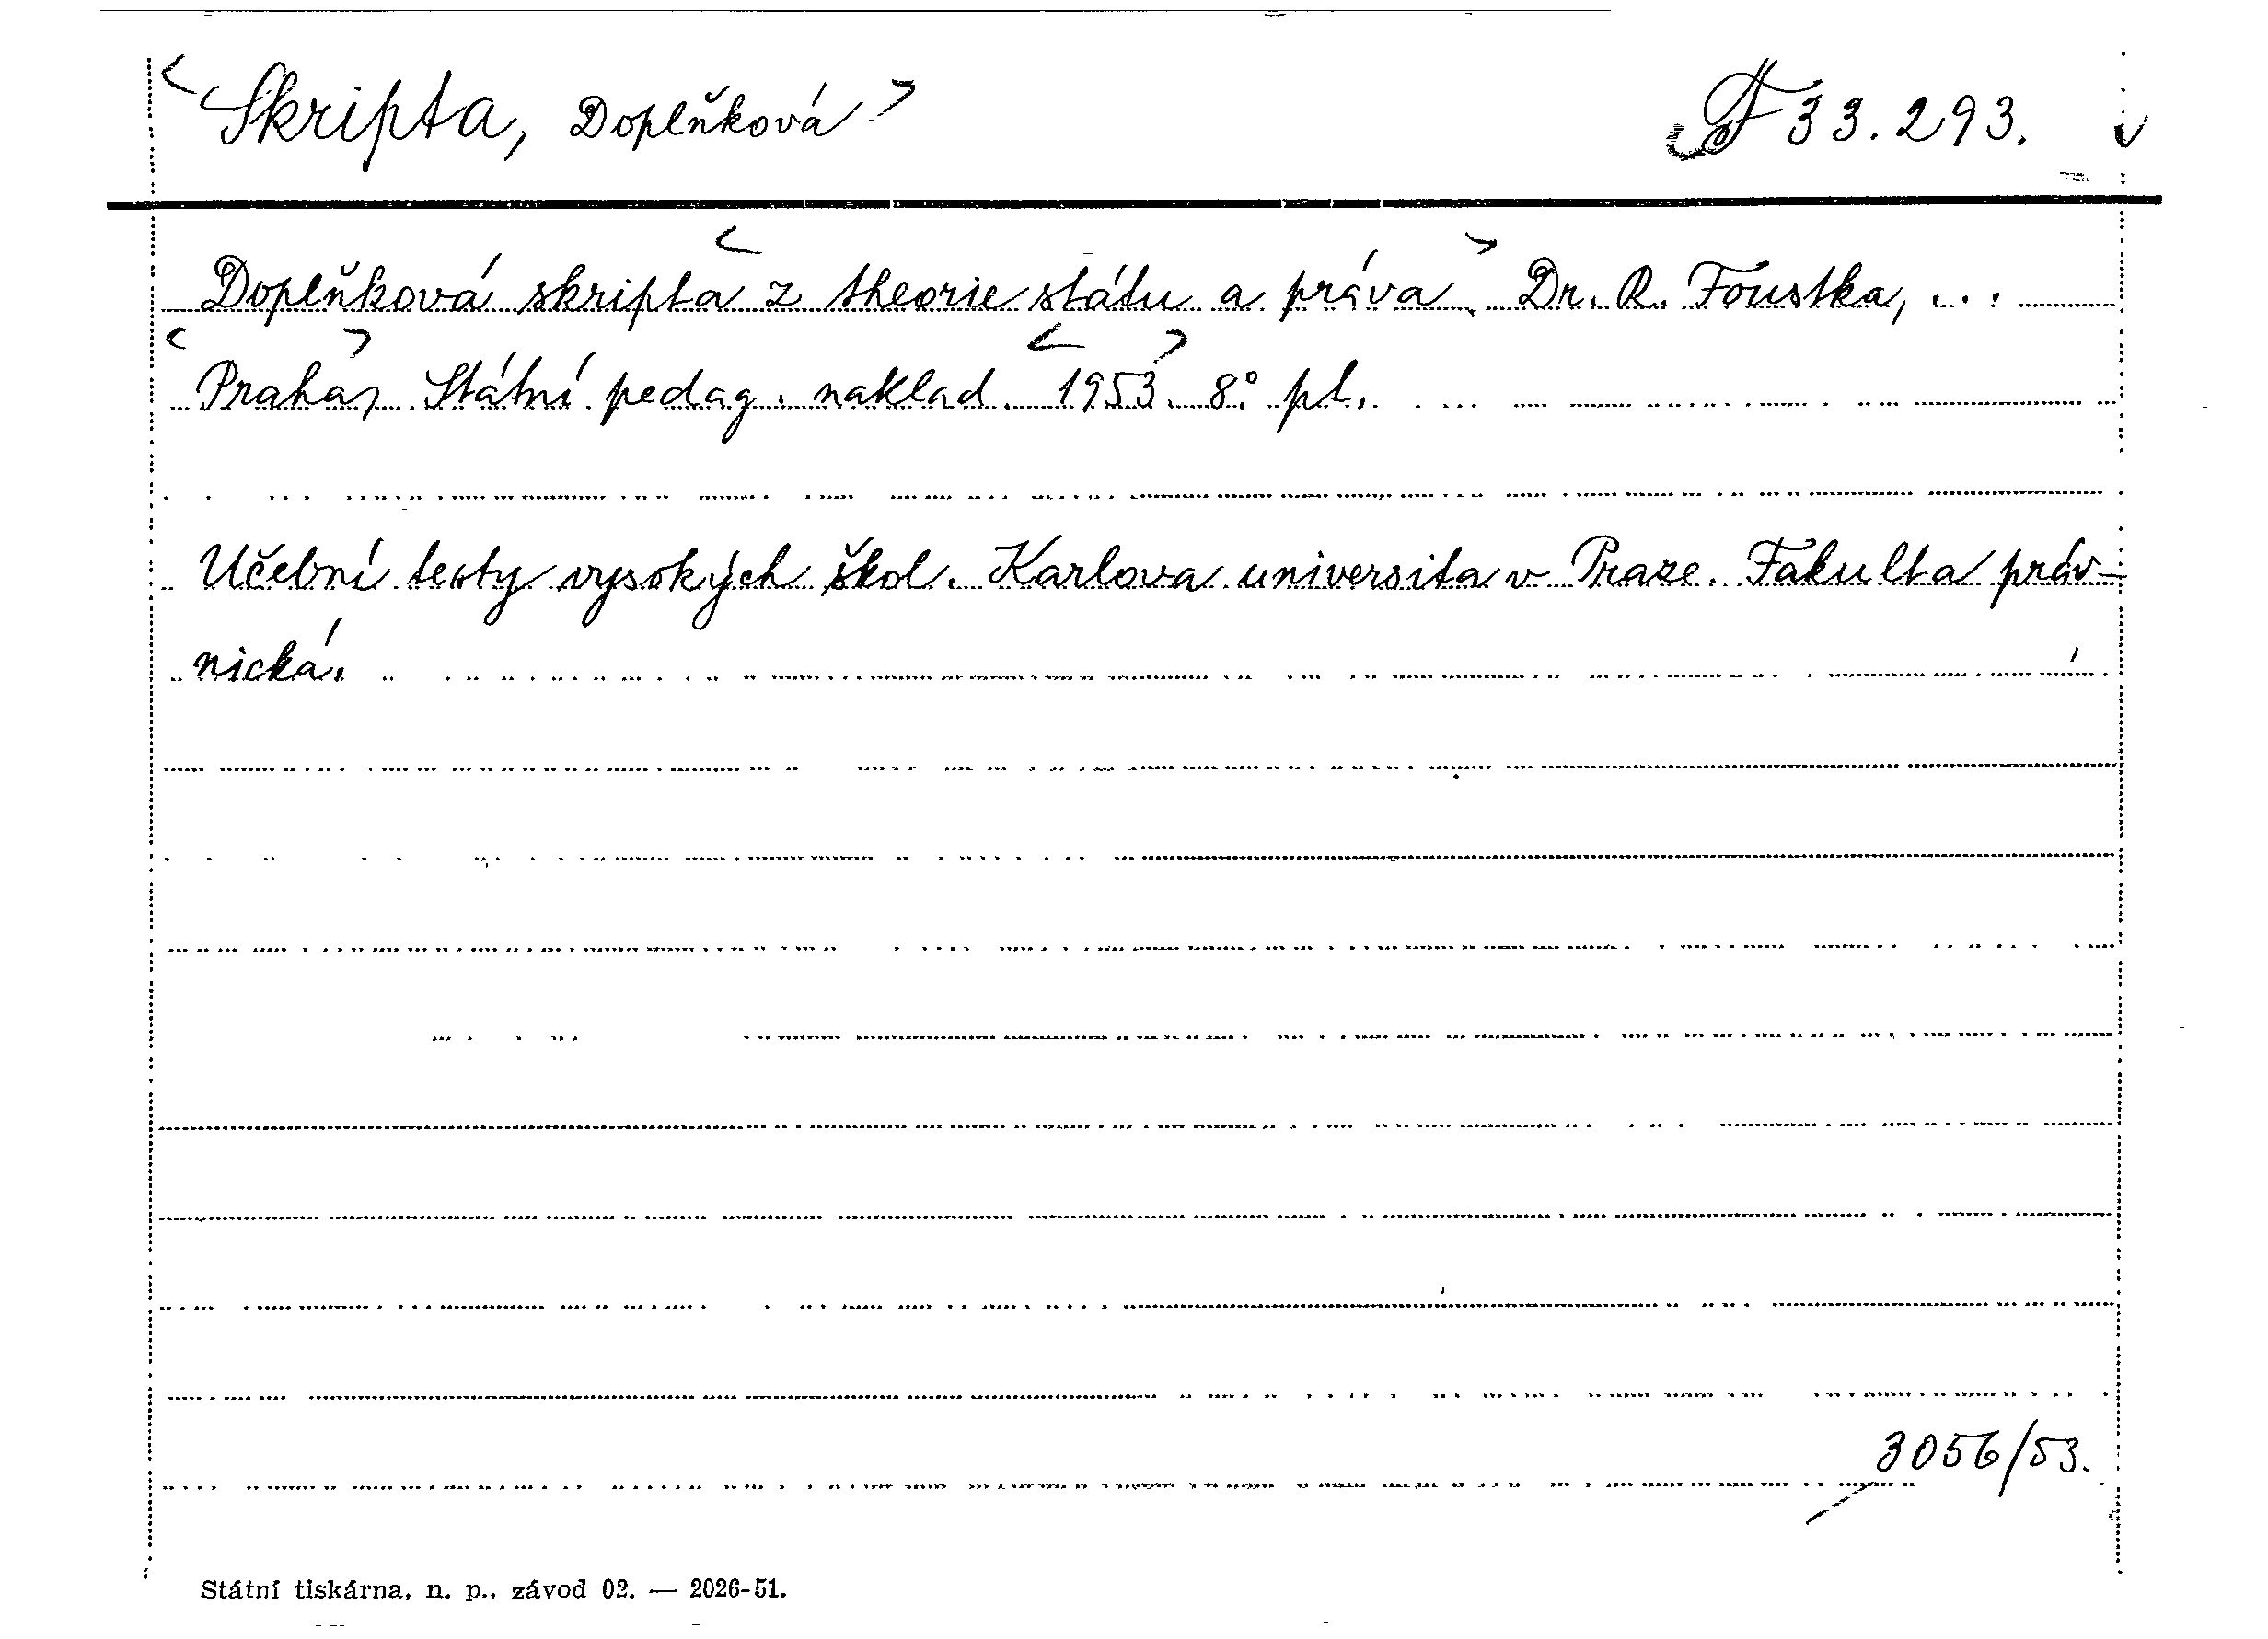 <Skripta, Doplňková> F 33.293.
Doplňková skripta <z theorie státu a práva>. Dr. R. Foustka, ...
<Praha>, Státní pedag. naklad. <1953>. 8° pl.
Učební texty vysokých škol. Karlova universita v Praze. Fakulta práv-
nická.
3056/53.
Státní tiskárna, n. p., závod 02. — 2026-51.